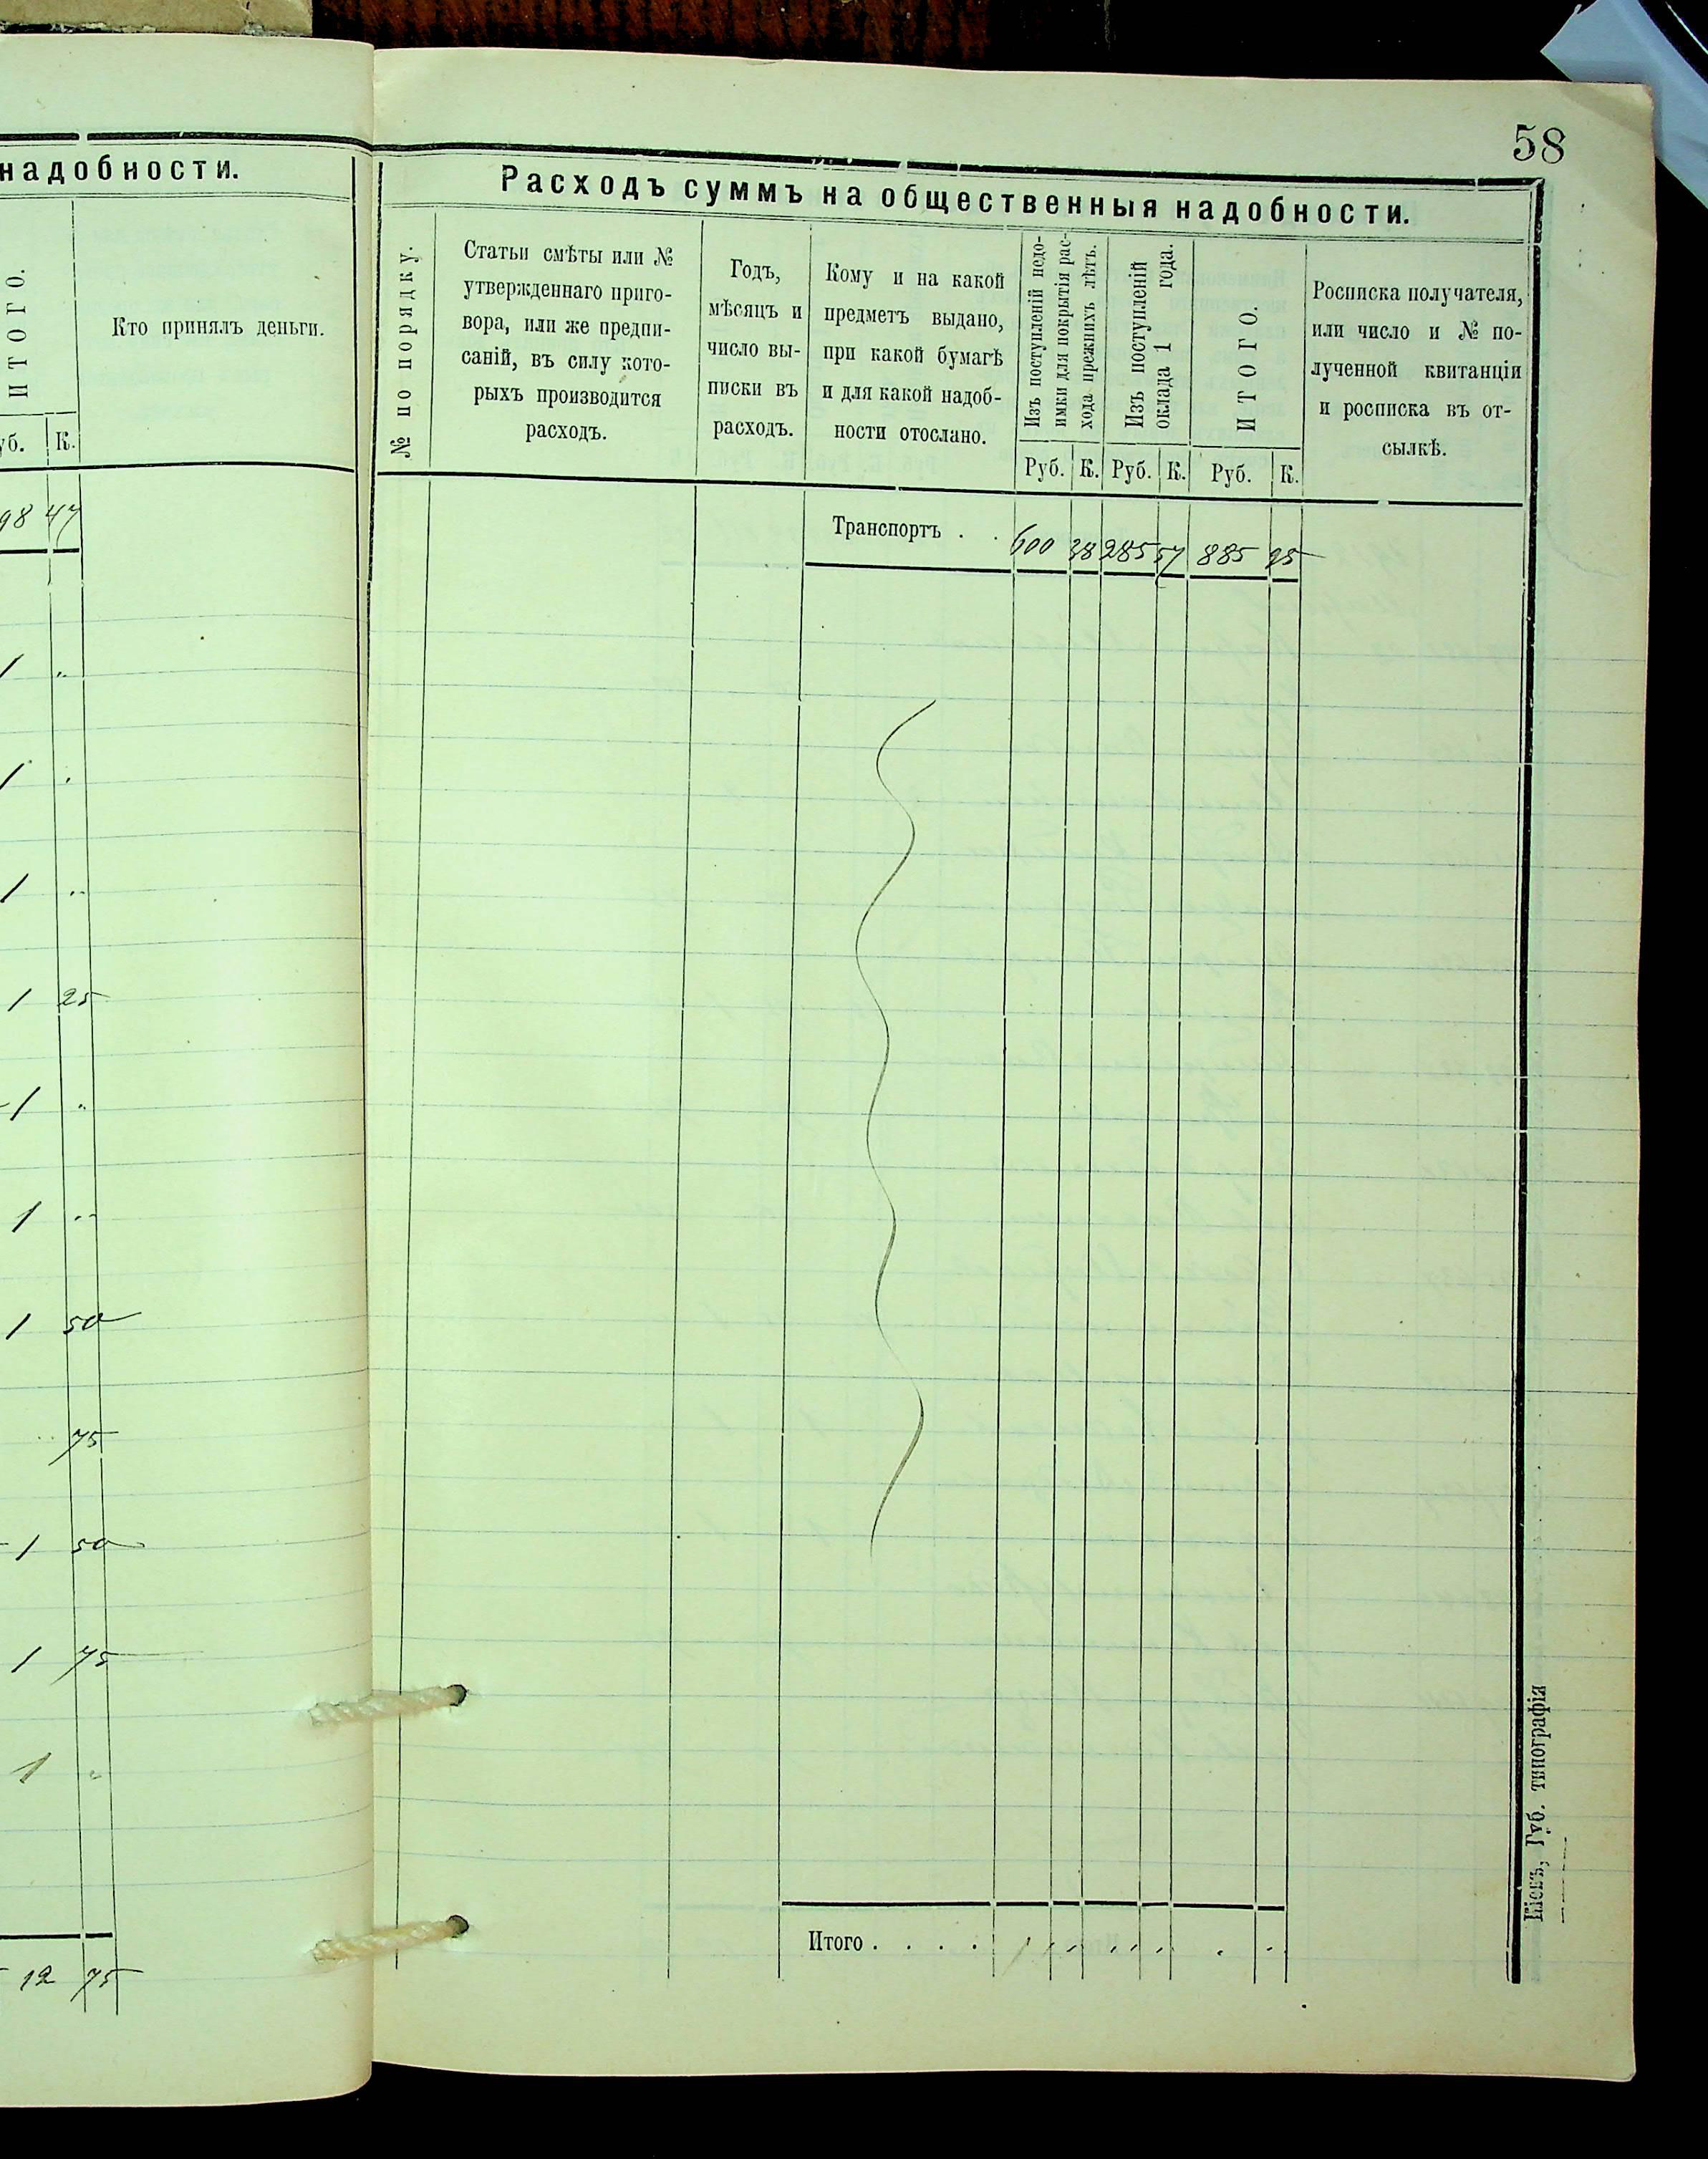 надобности.
ИТОГО.
Кто принялъ деньги.
уб. К.
98 47
1 "
1 "
1 "
1 25
1 "
1 "
1 50
75
1 50
1 75
1 "
12 75
58
Расходъ суммъ на общественныя надобности.
№ по порядку.
Статьи смѣты или №
утвержденнаго приго-
вора, или же предпи-
саній, въ силу кото-
рыхъ производится
расходъ.
Годъ,
мѣсяцъ и
число вы-
писки въ
расходъ.
Кому и на какой
предметъ выдано,
при какой бумагѣ
и для какой надоб-
ности отослано.
Изъ поступленій недо-
имки для покрытія рас-
хода прежнихъ лѣтъ.
Изъ поступленій
оклада 1 года.
ИТОГО.
Росписка получателя,
или число и № по-
лученной квитанціи
и росписка въ от-
сылкѣ.
Руб. К. Руб. К. Руб. К.
Транспортъ . . 600 38 285 57 885 95
Итого . . . .
Кіевъ, Губ. типографія